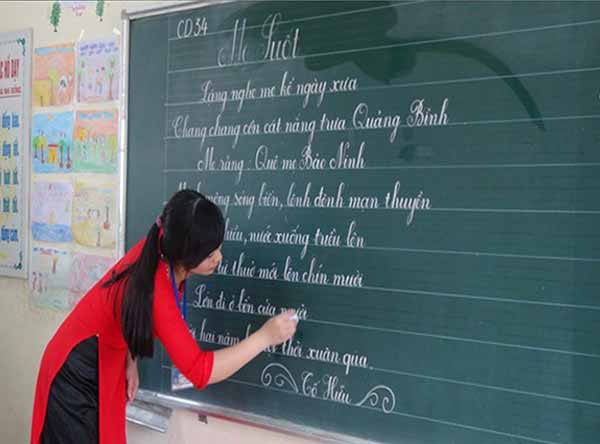 CD34
Mẹ Suốt
Lắng nghe mẹ kể ngày xưa
Chang chang cồn cát nắng trưa Quảng Bình
Mẹ rằng: Quê mẹ Bảo Ninh
mông sóng biển, lênh đênh mạn thuyền
nước xuống triều lên
thuở mới lên chín mười
Lớn đi ở bốn cửa người
hai năm thời xuân qua.
Tố Hữu
HỒ DẠY